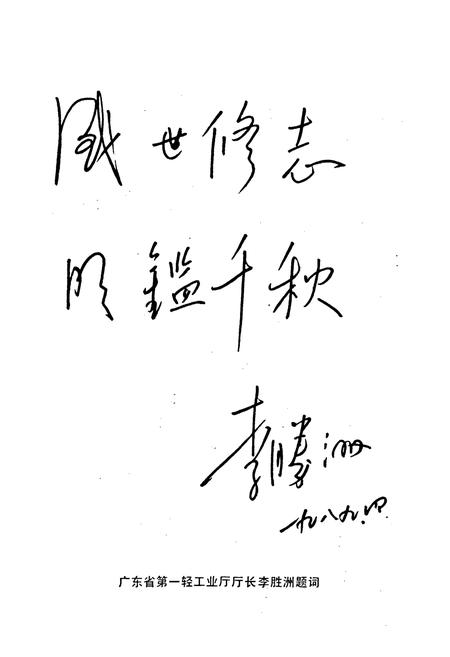 盛世修志
明鑑千秋
李勝洲
一九八九.四.
广东省第一轻工业厅厅长李胜洲题词